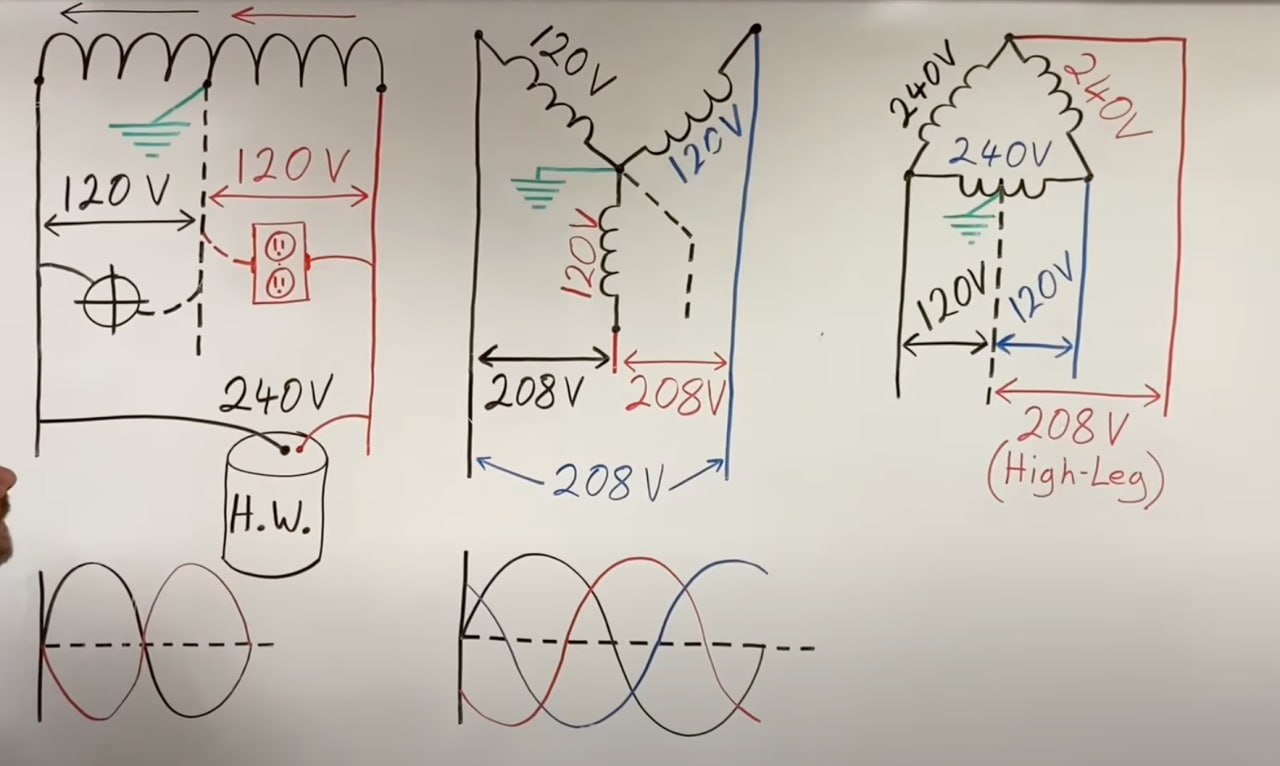 120 V
120 V
240V
H.W.
120V
120V
120V
208V
208V
208V
240V
240V
240V
120V
120V
208V
(High-Leg)